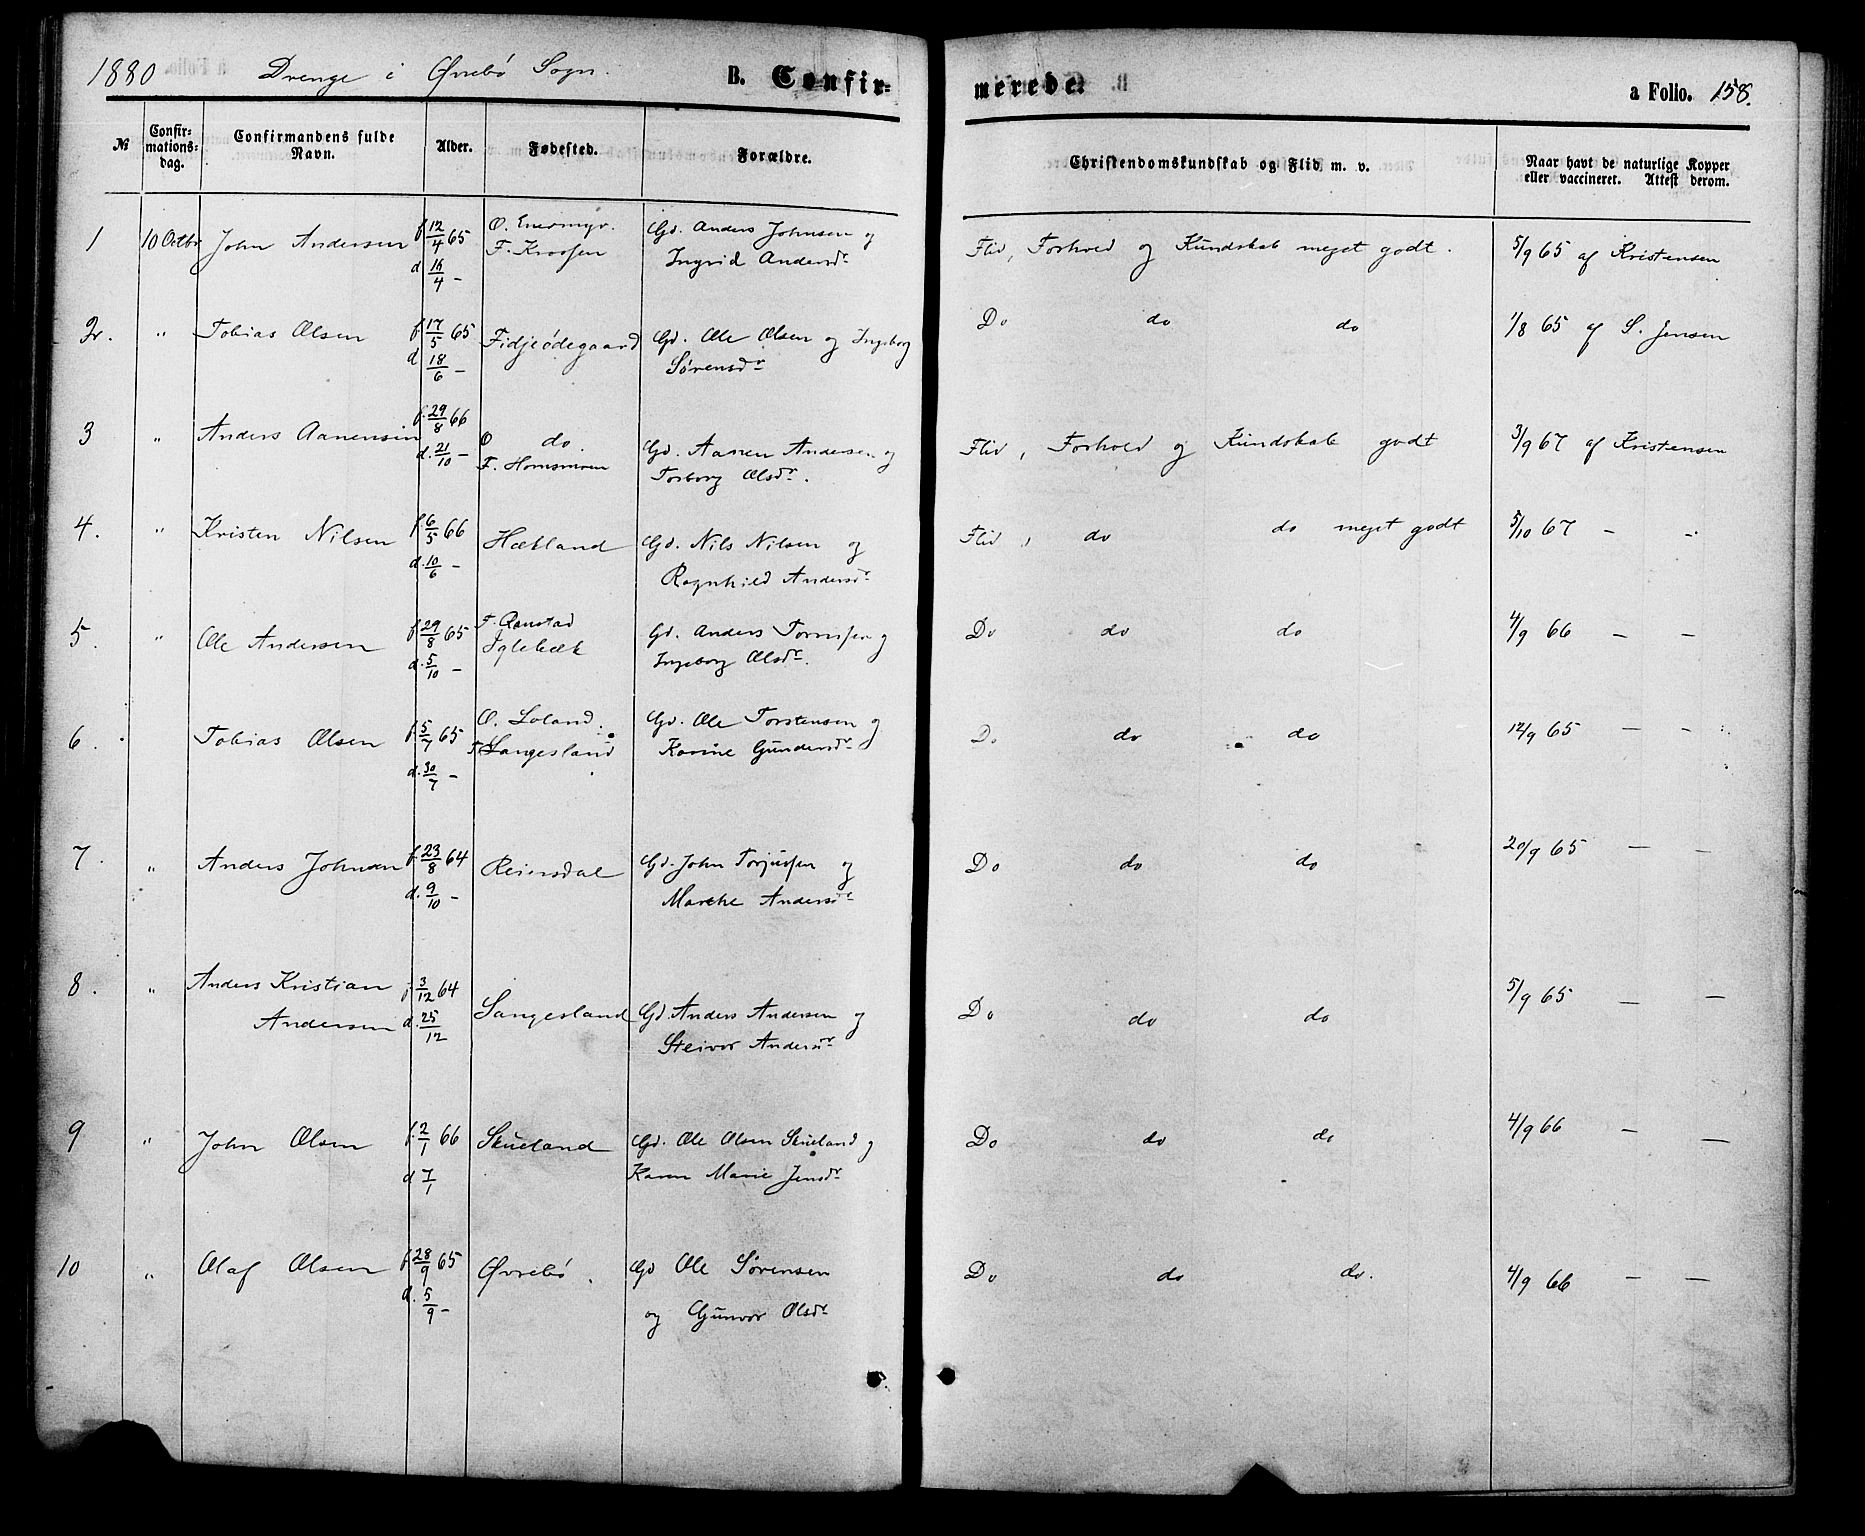 1880 Drenge i Øvrebø Sogn. B. Confir- merede. a Folio. 158.
№ Confir-mations-dag. Confirmandens fulde Navn. Alder. Fødested. Forældre. Christendomskundskab og Flid m. v. Naar havt de naturlige Kopper eller vaccineret. Attest derom.
1 10 Octbr John Andersen f. 12/4 65 O. Gd. Anders Johnsen og Flid, Forhold og Kundskab meget godt. 5/9 65 af Kristensen
d 16/4 – F. Ingrid Andersdr
2. " Tobias Olsen f. 17/5 65 Fidjeødegaard Gd. Ole Olsen og Ingeborg Do do do 1/8 65 af S. Jensen
d 18/6 – Sørensdr
3 " Anders Aanensen f. 29/8 66 O do. Gd. Aanen Andersen og Flid, Forhold og Kundskab godt 3/9 67 af Kristensen
d. 21/10 – F. Homsmoen Torborg Olsdr.
4. " Kristen Nilsen f. 6/5 66 Hækland Gd. Nils Nilsen og Flid, do do meget godt 5/10 67 – –
d. 10/6 – Ragnhild Andersdr
5. " Ole Andersen f. 29/8 65 F. Ranstad Gd. Anders og Do do do 4/9 66 – –
d. 5/10 – Iglebæk Ingeborg Olsdr.
6. Tobias Olsen f. 5/7 65 O. Loland. Gd. Ole Torstensen og Do do do 12/9 65 – –
d. 30/7 – F. Langesland Karine Gundersdr
7. " Anders Johnsen f. 23/8 64 Reiersdal Gd. John Torjussen og Do do do 20/9 65 – –
d. 9/10 – Marthe Andersdr
8. " Anders Kristian f. 3/12 64 Langesland Gd. Anders Andersen og Do do do 5/9 65 – –
Andersen d. 25/12 Steivor Andersdr
9 " John Olsen f. 2/1 66 Skueland Gd. Ole Olsen Skueland og Do do do 4/9 66 – –
d 7/1 Karen Marie Jensdr
10 " Olaf Olsen f. 28/9 65 Øvrebø. Gd Ole Sørensen Do do do. 4/9 66 – –
d. 5/9 – og Gunvor Olsdr